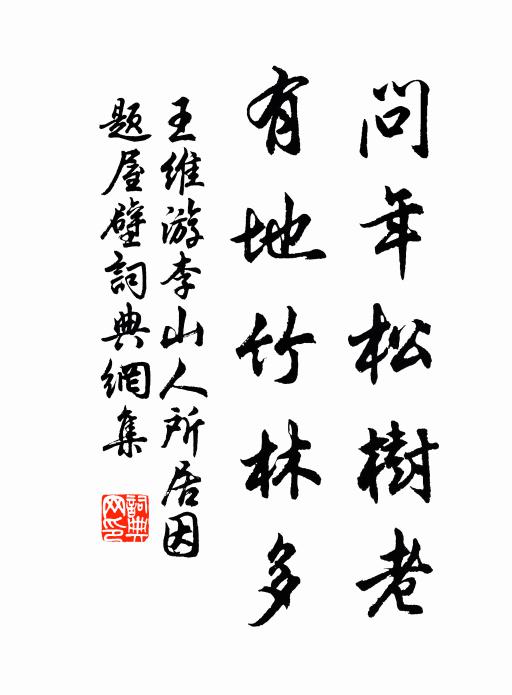 問年松樹老
有地竹林多
王維游李山人所居因
題屋壁詞典網集
詞典网印